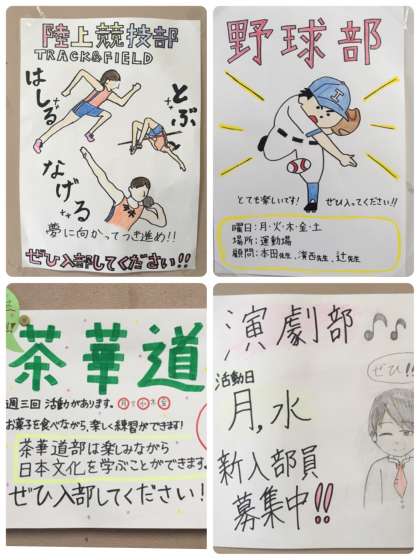 陸上競技部
TRACK&FIELD
はしる
とぶ
なげる
夢に向かってつき進め!!
ぜひ入部してください!!
野球部
とても楽しいです! ぜひ入ってください!!
曜日:月・火・木・金・土
場所:運動場
顧問:本田先生、濱西先生、辻先生
茶華道
週三回 活動があります。月水金
お菓子を食べながら、楽しく練習ができます!
茶華道部は楽しみながら
日本文化を学ぶことができます。
ぜひ入部してください!
演劇部
ぜひ!!
活動日
月,水
新入部員
募集中!!